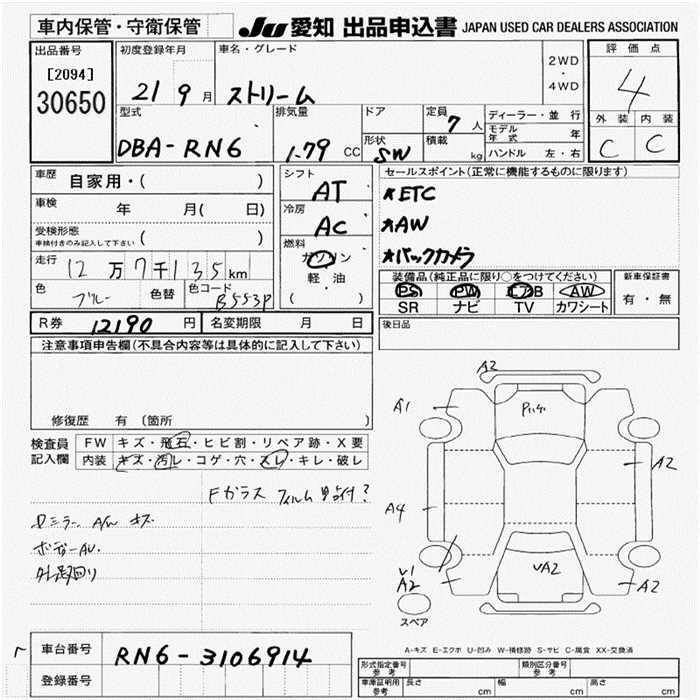 車内保管・守衛保管
JU 愛知 出品申込書 JAPAN USED CAR DEALERS ASSOCIATION
出品番号
[2094]
30650
初度登録年月
21 9 月
車名・グレード
ストリーム
2WD
・
4WD
評価点
4
外装 内装
C C
型式
DBA-RN6
排気量
1.79 CC
ドア
形状
SW
定員
7 人
積載
kg
ディーラー・並行
モデル年式 年
ハンドル 左・右
車歴 自家用・( )
車検 年 月( 日)
受検形態
車検付きのみ記入して下さい ( )
走行 12万7千135km
色 ブルー 色替 色コード B553P
シフト
AT
冷房
AC
燃料
ガソリン
・
軽・油
( )
セールスポイント(正常に機能するものに限ります)
*ETC
*AW
*バックカメラ
装備品(純正品に限り○をつけてください)
PS PW エアB AW
SR ナビ TV カワシート
新車保証書
有・無
後日品
R券 12190 円 名変期限 月 日
注意事項申告欄(不具合内容等は具体的に記入して下さい)
修復歴 有(箇所 )
検査員記入欄
FW キズ・飛石・ヒビ割・リペア跡・X要
内装 キズ・汚レ・コゲ・穴・スレ・キレ・破レ
Fガラス フィルム
ボデーAU.
A2
A1
A2
A4
V1
A2
UA2
A2
スペア
A-キズ E-エクボ U-凹み W-補修跡 S-サビ C-腐食 XX-交換済
車台番号 RN6-3106914
登録番号
形式指定番号 参考
類別区分番号 参考
車庫証明用 参考 長さ cm 幅 cm 高さ cm